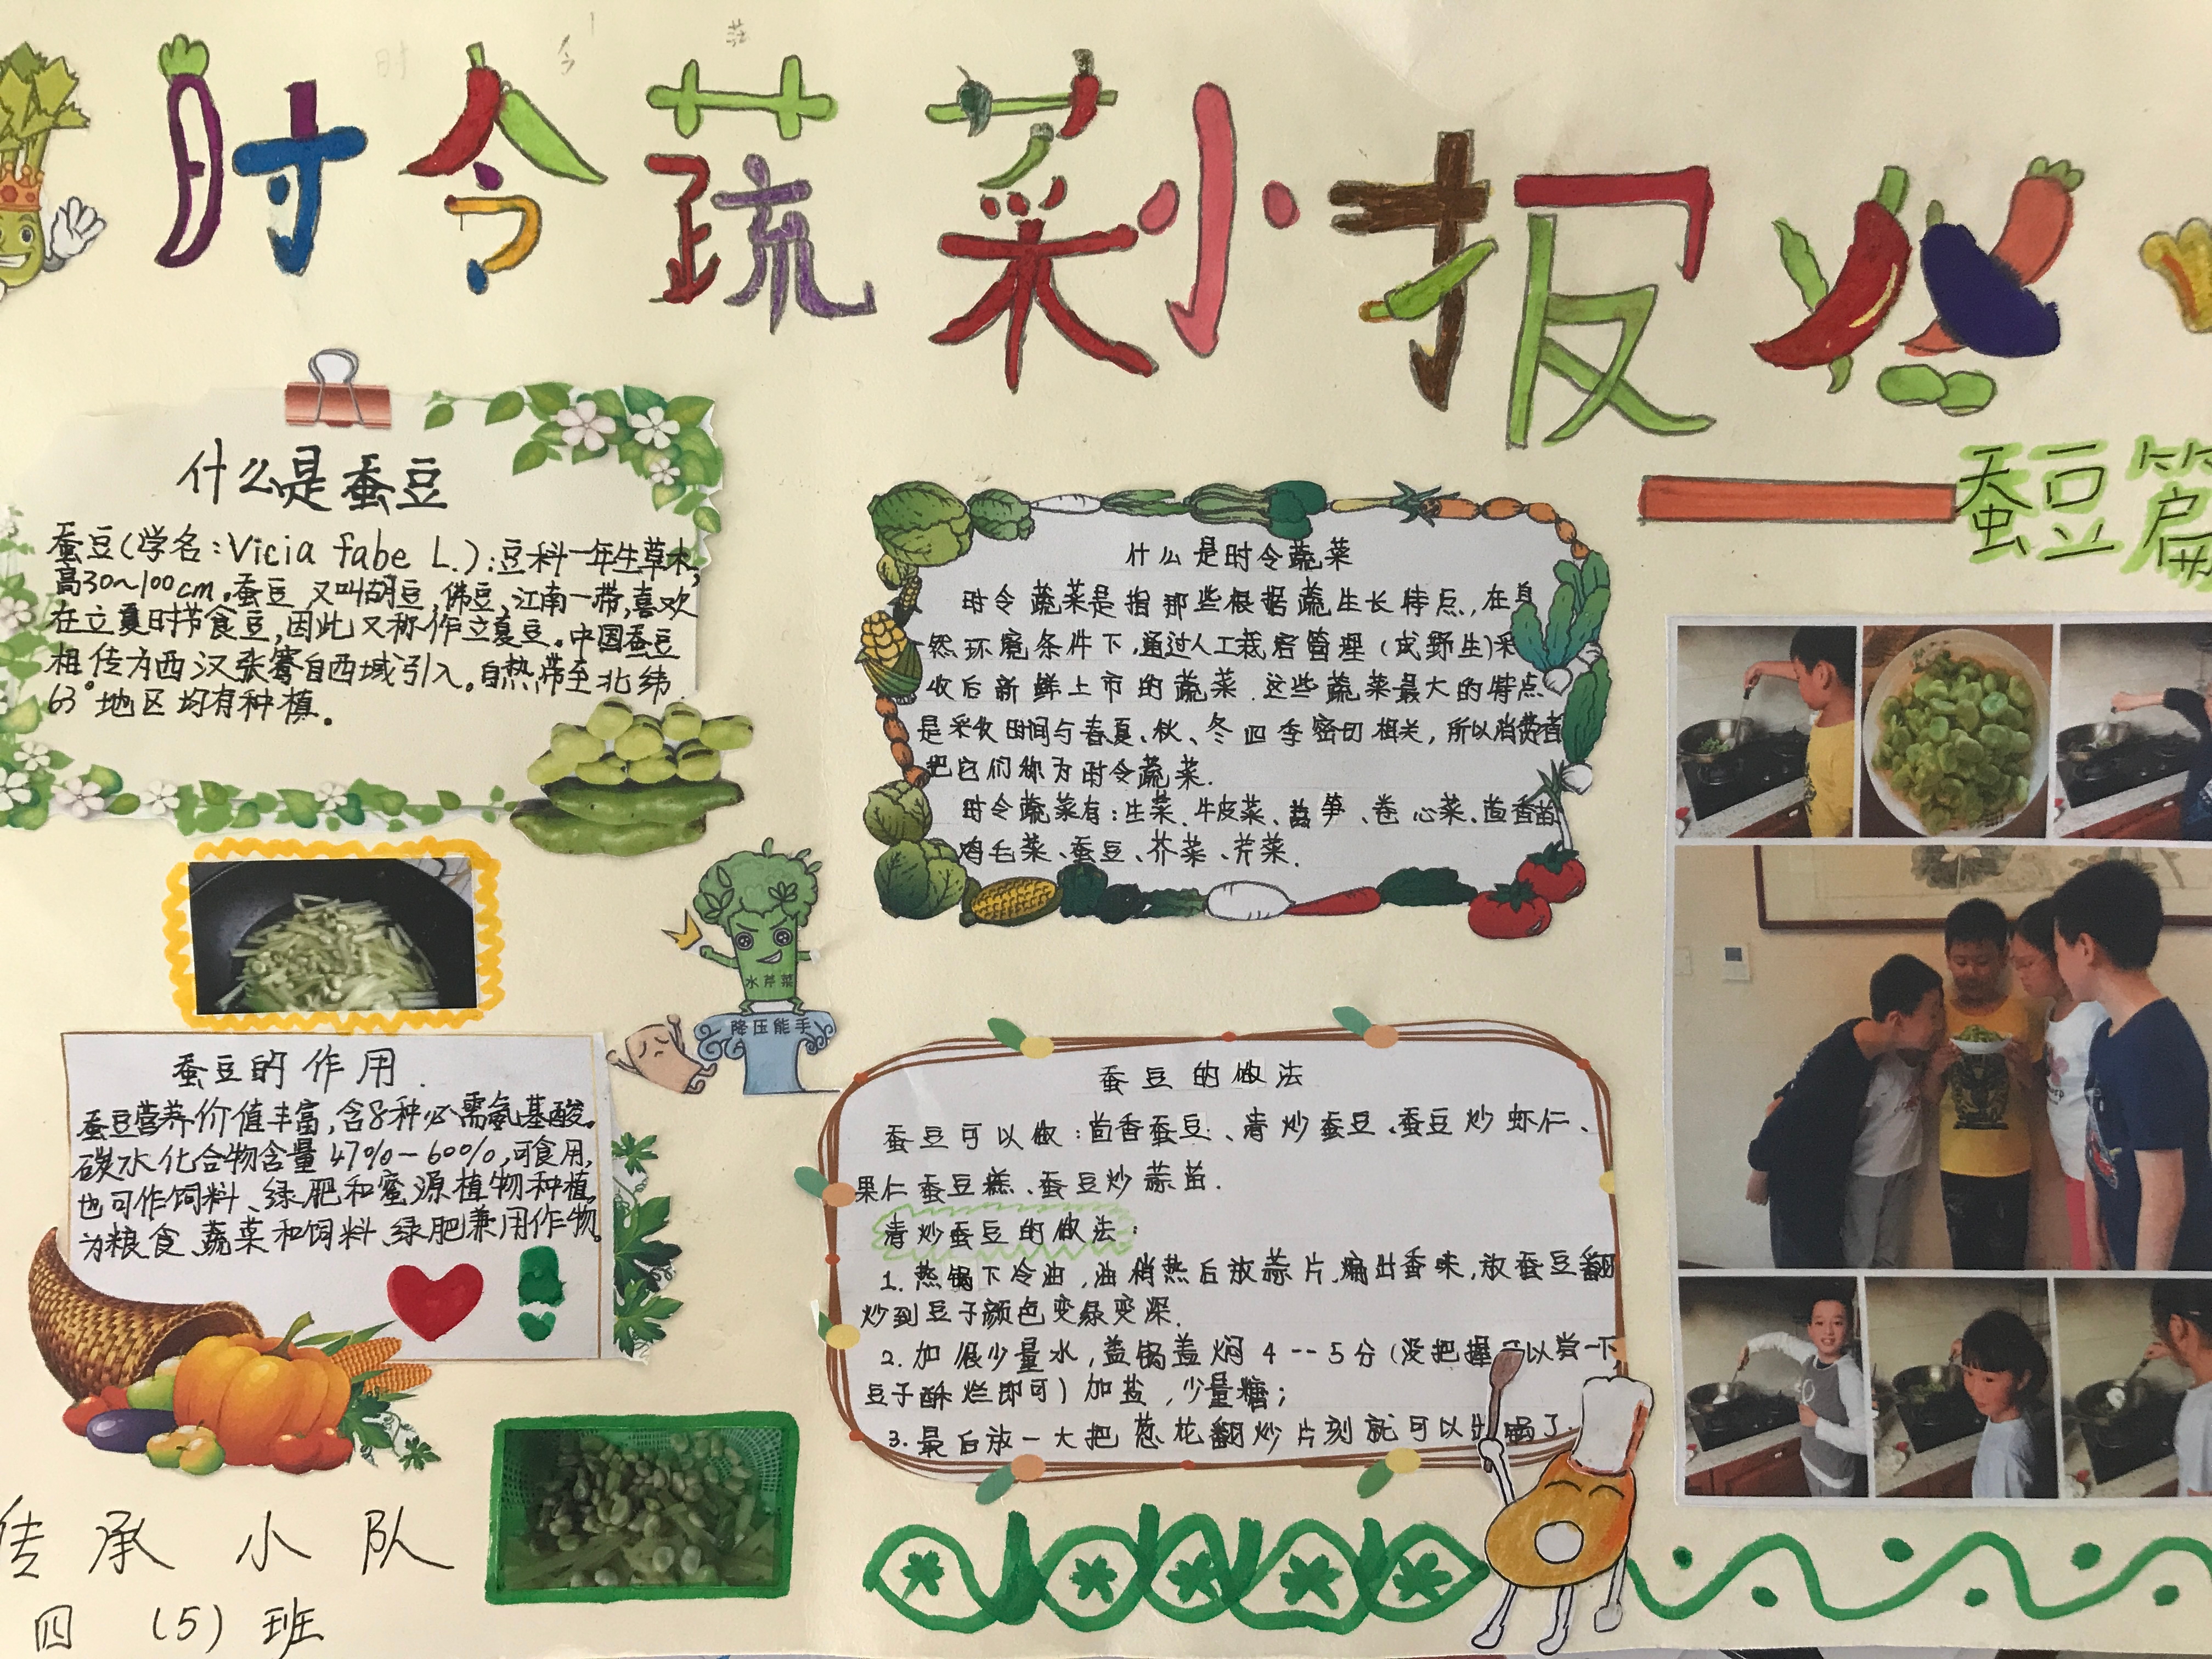 时令蔬菜小报
蚕豆篇
什么是蚕豆
蚕豆(学名:Vicia fabe L.):豆科一年生草本,
高30~100cm。蚕豆又叫胡豆,佛豆,江南一带,喜欢
在立夏时节食豆,因此又称作立夏豆。中国蚕豆
相传为西汉张骞自西域引入。自热带至北纬
63°地区均有种植。
什么是时令蔬菜
时令蔬菜是指那些根据蔬生长特点,在自
然环境条件下,通过人工栽培管理(或野生)采
收后新鲜上市的蔬菜.这些蔬菜最大的特点
是采收时间与春夏、秋、冬四季密切相关,所以消费者
把它们称为时令蔬菜.
时令蔬菜有:生菜、牛皮菜、莴笋、卷心菜、茴香苗
鸡毛菜、蚕豆、芥菜、芹菜.
水芹菜
降压能手
蚕豆的作用.
蚕豆营养价值丰富,含8种必需氨基酸。
碳水化合物含量47%-60%,可食用,
也可作饲料、绿肥和蜜源植物种植。
为粮食、蔬菜和饲料、绿肥兼用作物。
蚕豆的做法
蚕豆可以做:茴香蚕豆、清炒蚕豆、蚕豆炒虾仁、
果仁蚕豆糕、蚕豆炒蒜苗.
清炒蚕豆的做法:
1.热锅下冷油,油稍热后放蒜片,煸出香味,放蚕豆翻
炒到豆子颜色变绿变深.
2.加很少量水,盖锅盖焖4--5分(没把握可以尝一下,
豆子酥烂即可)加盐,少量糖;
3.最后放一大把葱花翻炒片刻就可以出锅了.
传承小队
四(5)班